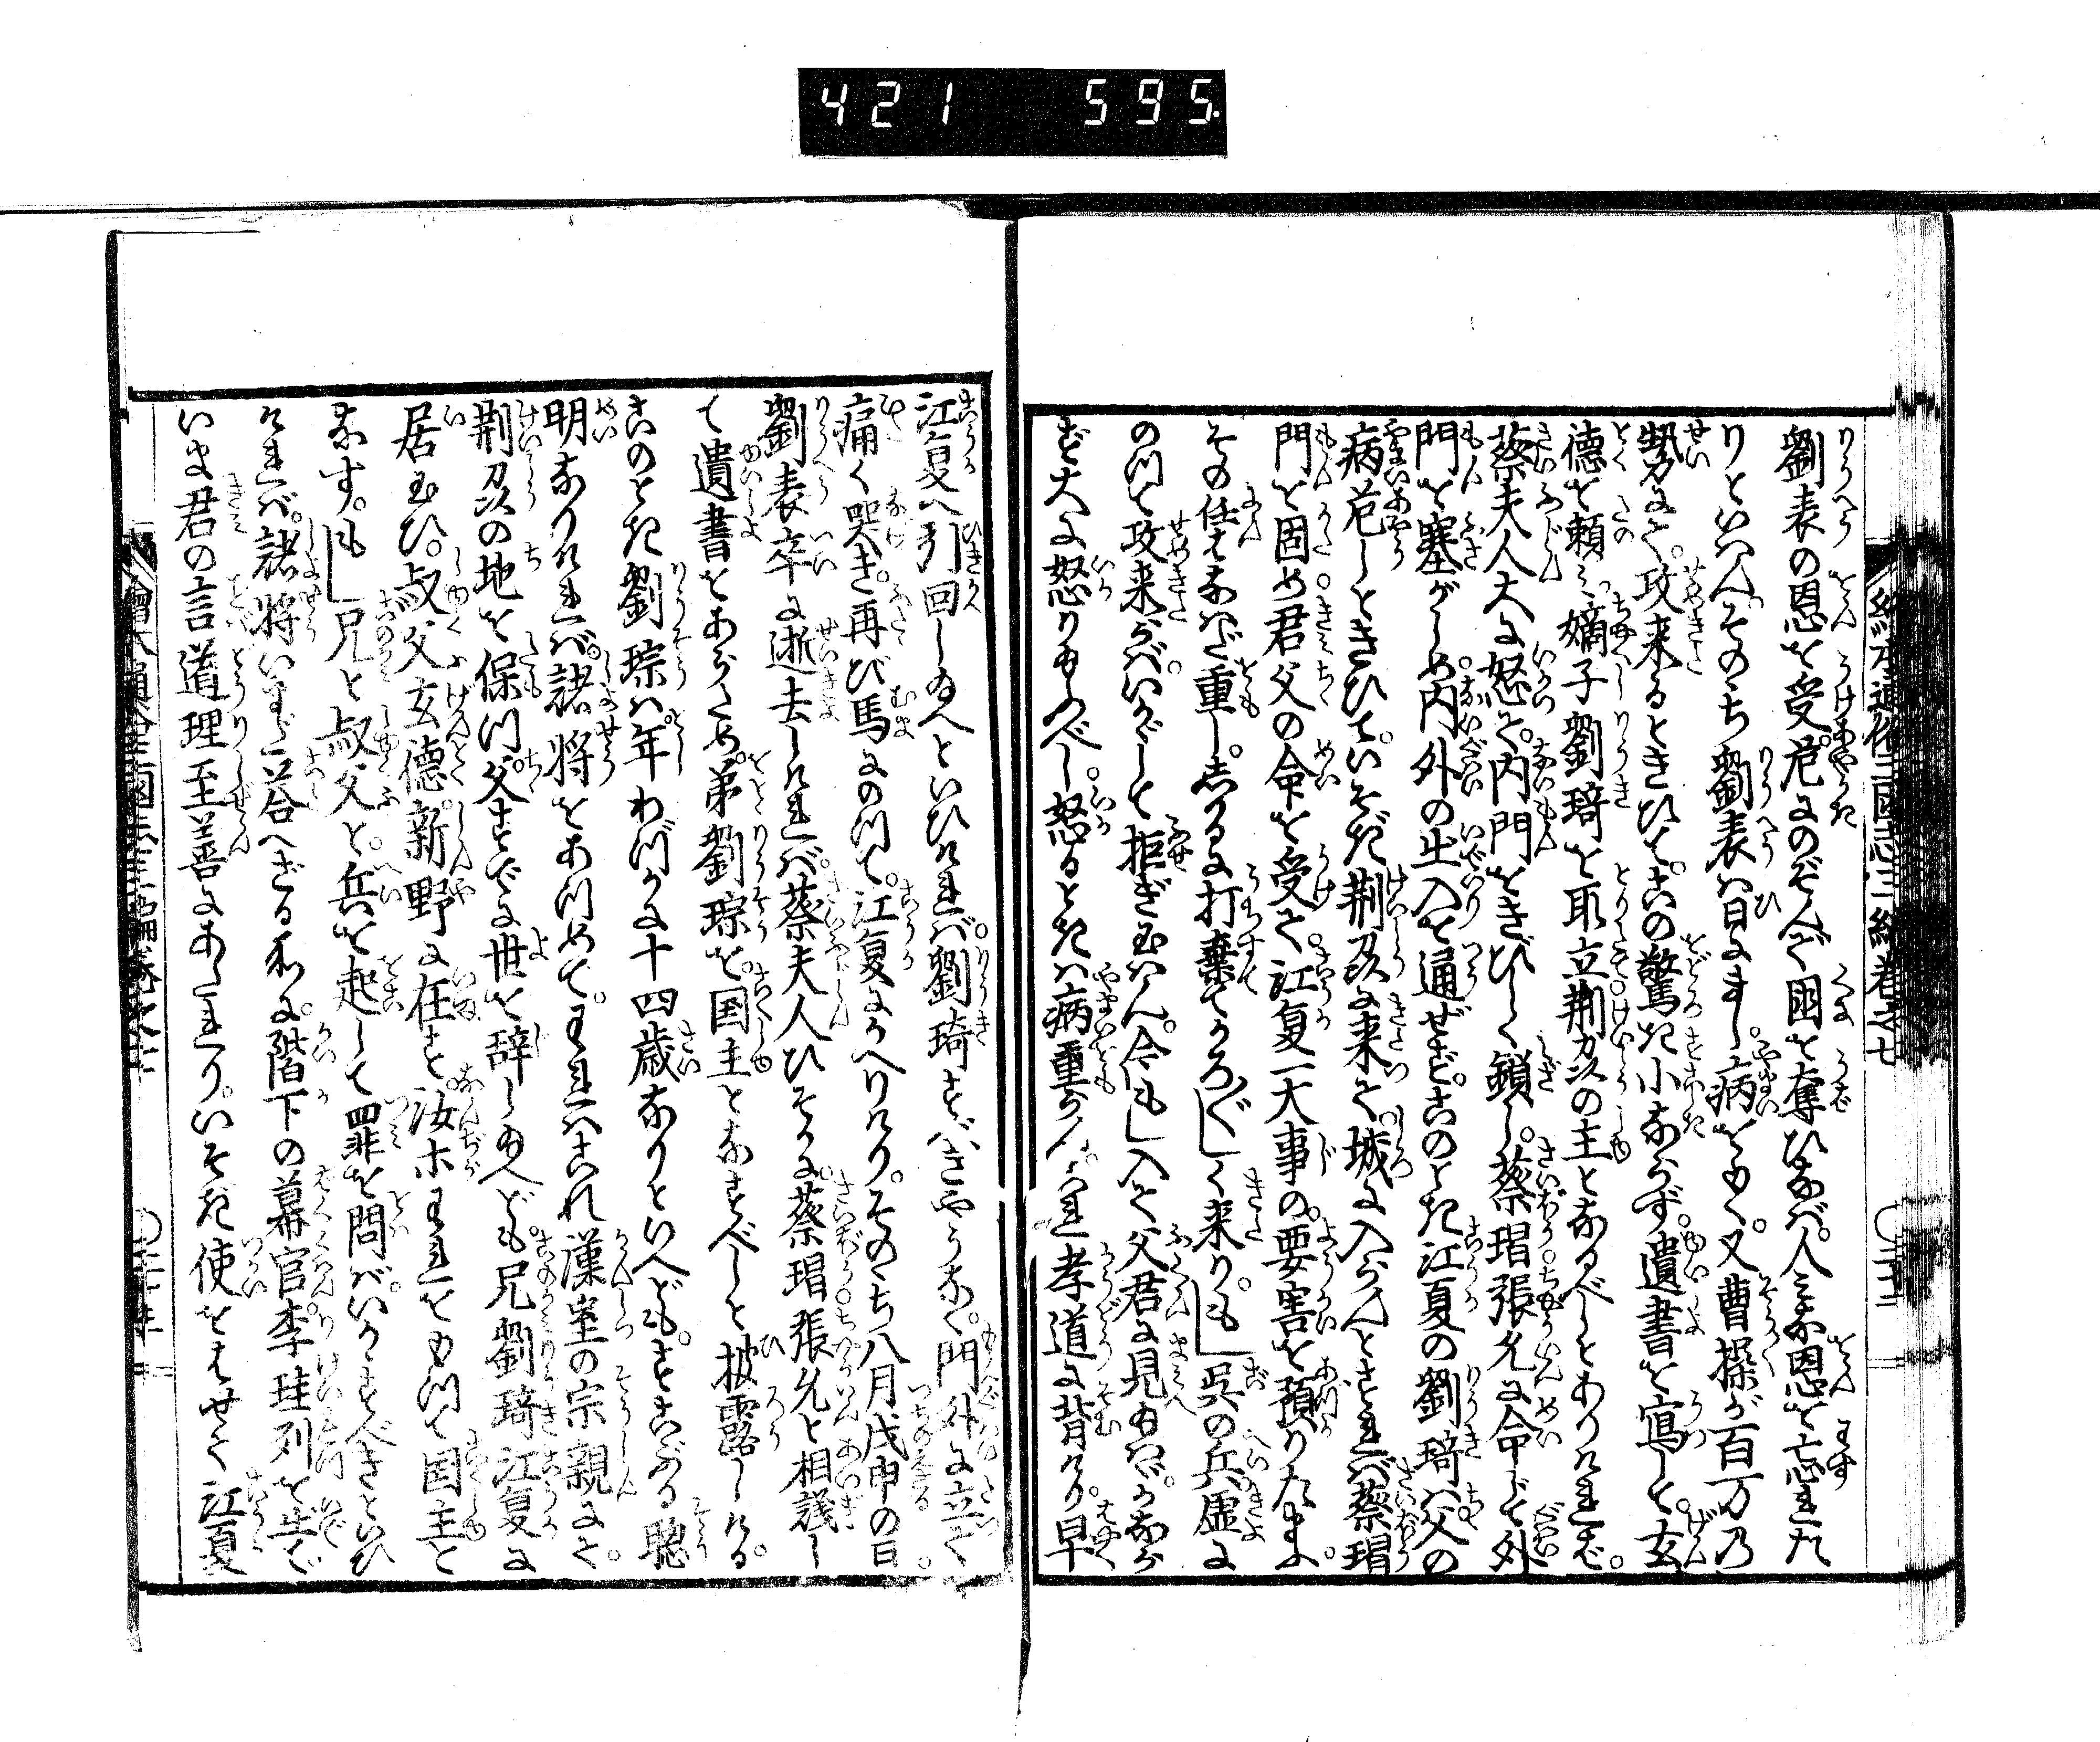 421 595.
劉表の恩を受危にのぞんで国を奪ひなバ。人ミな恩を忘れた
りといハん。そのち劉表ハ日にまし。病をもく。又曹操が百万乃
勢力にて。攻来るときひて。この驚き小ならず。遺書を寫して。玄
徳を頼ミ嫡子劉琦を取立荆州の主となるべしとありけれど。
蔡夫人大に怒て。内門をきびしく鎖し。蔡瑁張允に命じて外
門を塞がしめ。内外の出入を通ぜず。このとき江夏の劉琦ハ。父の
病危しときひて。いそぎ荆州に来て。城に入らんとすれバ。蔡瑁
門を固め。君父の命を受て。江夏一大事の。要害を預りたまふ。
その任はなはだ重し。しかるに打棄てかろ〴〵しく来り。もし呉の兵。虚に
のつて攻来らバ。いかゞして拒ぎ玉ハん。今もし入て父君に見給ハヾ。かならず
大に怒り給ふべし。怒るときハ病重からん。これ孝道に背けり。早く
江夏へ引回し給へといひけれバ。劉琦すべきやうなく。門外に立て
痛く哭き。再び馬にのつて。江夏にかへりけり。そのち八月戊申の日。
劉表卒に逝去しけれバ。蔡夫人ひそかに。蔡瑁張允と相議し
て遺書をあらため。弟劉琮を。国主となすべしと披露しける。
このとき劉琮ハ。年わづかに十四歳なりといへども。すこぶる聡
明なりけれバ。諸将をあつめて。われハこれ漢室の宗親にて。
荆州の地を保つ。父すでに世を辞し給へども。兄劉琦江夏に
居玉ひ。叔父玄徳。新野に在す。汝ホわれをもつて国主と
なす。もし兄と叔父と。兵を起して罪を問バ。いかゞすべきといひ
けれバ。諸将いまだ荅へざる所に。階下の幕官李珪列を出て
いま君の言道理至善にあたれり。いそぎ使をはせて江夏